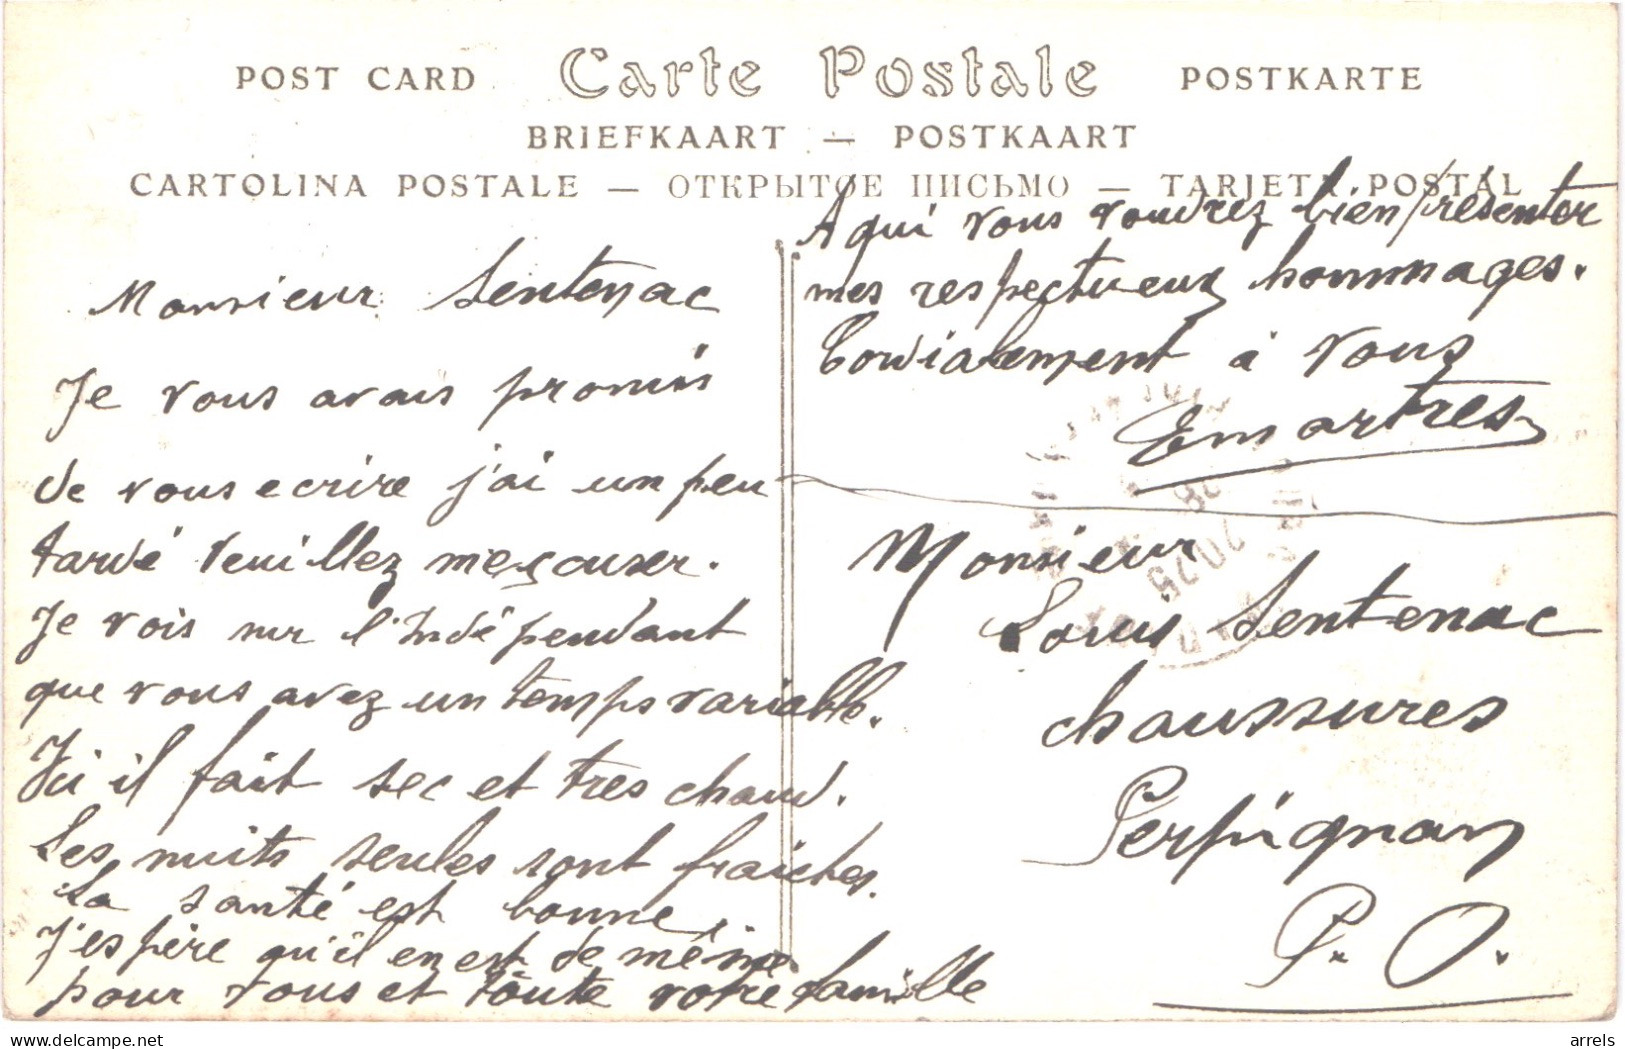 POST CARD Carte Postale POSTKARTE
BRIEFKAART — POSTKAART
CARTOLINA POSTALE — ОТКРЫТОЕ ПИСЬМО — TARJETA POSTAL
Monsieur Sentenac
Je vous avais promis
de vous ecrire j'ai un peu
tardé veuillez m'excuser.
Je vois sur l'Indépendant
que vous avez un temps variable.
Ici il fait sec et tres chaud.
Les nuits seules sont fraiches.
La santé est bonne,
J'espère qu'il en est de même
pour vous et toute votre famille
A qui vous voudrez bien présenter
mes respectueux hommages.
Cordialement à vous
Emartres
Monsieur
Louis Sentenac
chaussures
Perpignan
P. O.
delcampe.net
arrels